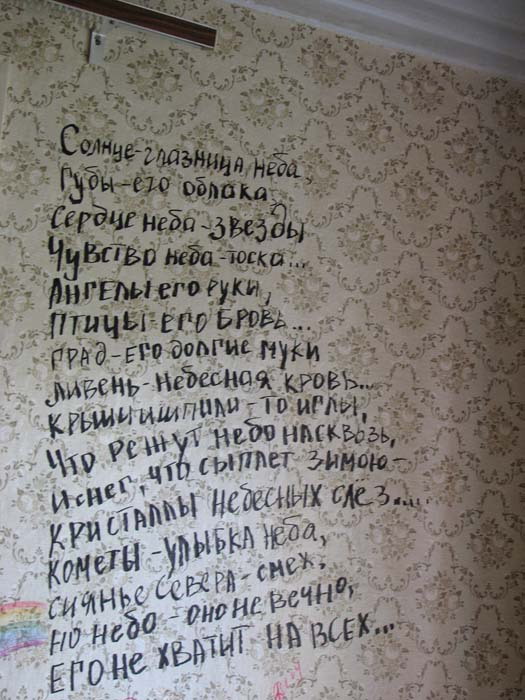 Солнце-глазница неба,
Губы-его облака
Сердце неба-звезды
Чувство неба-тоска...
Ангелы его руки,
Птицы-его бровь...
Град-его долгие муки
Ливень-небесная кровь...
Крыши и шпили-то иглы,
Что режут небо насквозь,
И снег, что сыплет зимою-
Кристаллы небесных слез....
Кометы-улыбка неба,
Сиянье севера-смех.
Но небо-оно не вечно,
Его не хватит на всех...